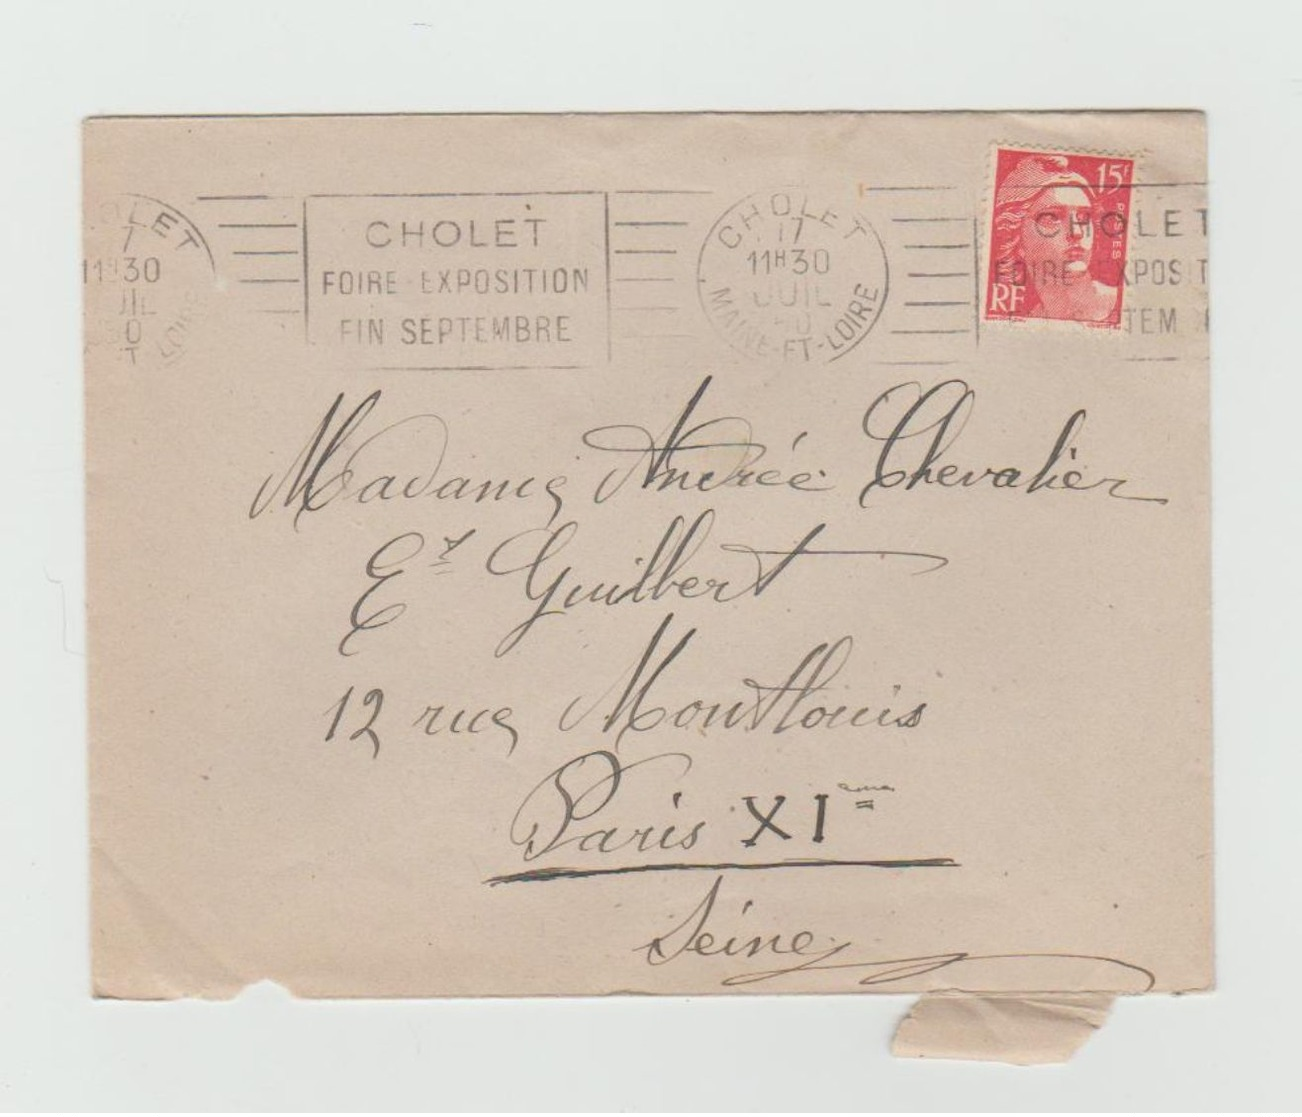 CHOLET
7
11H30
JUIL
50
LOIRE
CHOLET
FOIRE-EXPOSITION
FIN SEPTEMBRE
CHOLET
17
11H30
JUIL
MAINE-ET-LOIRE
15F
POSTES
RF
CHOLET
FOIRE EXPOSIT
Madame Andrée Chevalier
Et Guilbert
12 rue Montlouis
Paris XIème
Seine